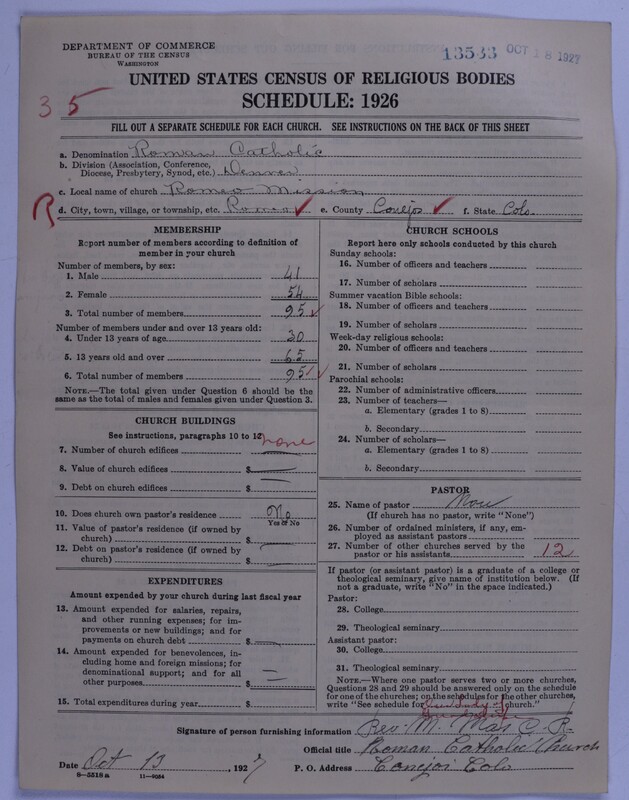 DEPARTMENT OF COMMERCE
BUREAU OF THE CENSUS
WASHINGTON
13533 OCT 18 1927
UNITED STATES CENSUS OF RELIGIOUS BODIES
SCHEDULE: 1926
35
FILL OUT A SEPARATE SCHEDULE FOR EACH CHURCH. SEE INSTRUCTIONS ON THE BACK OF THIS SHEET
a. Denomination Roman Catholic
b. Division (Association, Conference, Diocese, Presbytery, Synod, etc.) Denver
c. Local name of church Romeo Mission
R d. City, town, village, or township, etc. Romeo ✓ e. County Conejos ✓ f. State Colo.
MEMBERSHIP
Report number of members according to definition of
member in your church
Number of members, by sex:
1. Male 41
2. Female 54
3. Total number of members 95 ✓
Number of members under and over 13 years old:
4. Under 13 years of age 30
5. 13 years old and over 65
6. Total number of members 95 ✓
NOTE.—The total given under Question 6 should be
same as the total of males and females given under Question 3.
CHURCH BUILDINGS
See instructions, paragraphs 10 to 12 none
7. Number of church edifices
8. Value of church edifices $
9. Debt on church edifices $
10. Does church own pastor's residence No
Yes or No
11. Value of pastor's residence (if owned by
church) $
12. Debt on pastor's residence (if owned by
church) $
EXPENDITURES
Amount expended by your church during last fiscal year
13. Amount expended for salaries, repairs,
and other running expenses; for im-
provements or new buildings; and for
payments on church debt $
14. Amount expended for benevolences, in-
cluding home and foreign missions; for
denominational support; and for all
other purposes $
15. Total expenditures during year $
CHURCH SCHOOLS
Report here only schools conducted by this church
Sunday schools:
16. Number of officers and teachers
17. Number of scholars
Summer vacation Bible schools:
18. Number of officers and teachers
19. Number of scholars
Week-day religious schools:
20. Number of officers and teachers
21. Number of scholars
Parochial schools:
22. Number of administrative officers
23. Number of teachers—
a. Elementary (grades 1 to 8)
b. Secondary
24. Number of scholars—
a. Elementary (grades 1 to 8)
b. Secondary
PASTOR
25. Name of pastor
(If church has no pastor, write "None")
26. Number of ordained ministers, if any, em-
ployed as assistant pastors
27. Number of other churches served by the
pastor or his assistants 12
If pastor (or assistant pastor) is a graduate of a college or
theological seminary, give name of institution below. (If
not a graduate, write "No" in the space indicated.)
Pastor:
28. College
29. Theological seminary
Assistant pastor:
30. College
31. Theological seminary
NOTE.—Where one pastor serves two or more churches,
Questions 28 and 29 should be answered only on the schedule
for one of the churches; on the schedules for the other churches,
write "See schedule for Our Lady of Guadalupe church."
Signature of person furnishing information Rev. M. Mas C. R.
Official title Roman Catholic Church
Date Oct 13, 1927 P. O. Address Conejos Colo
8—5518a 11—9054